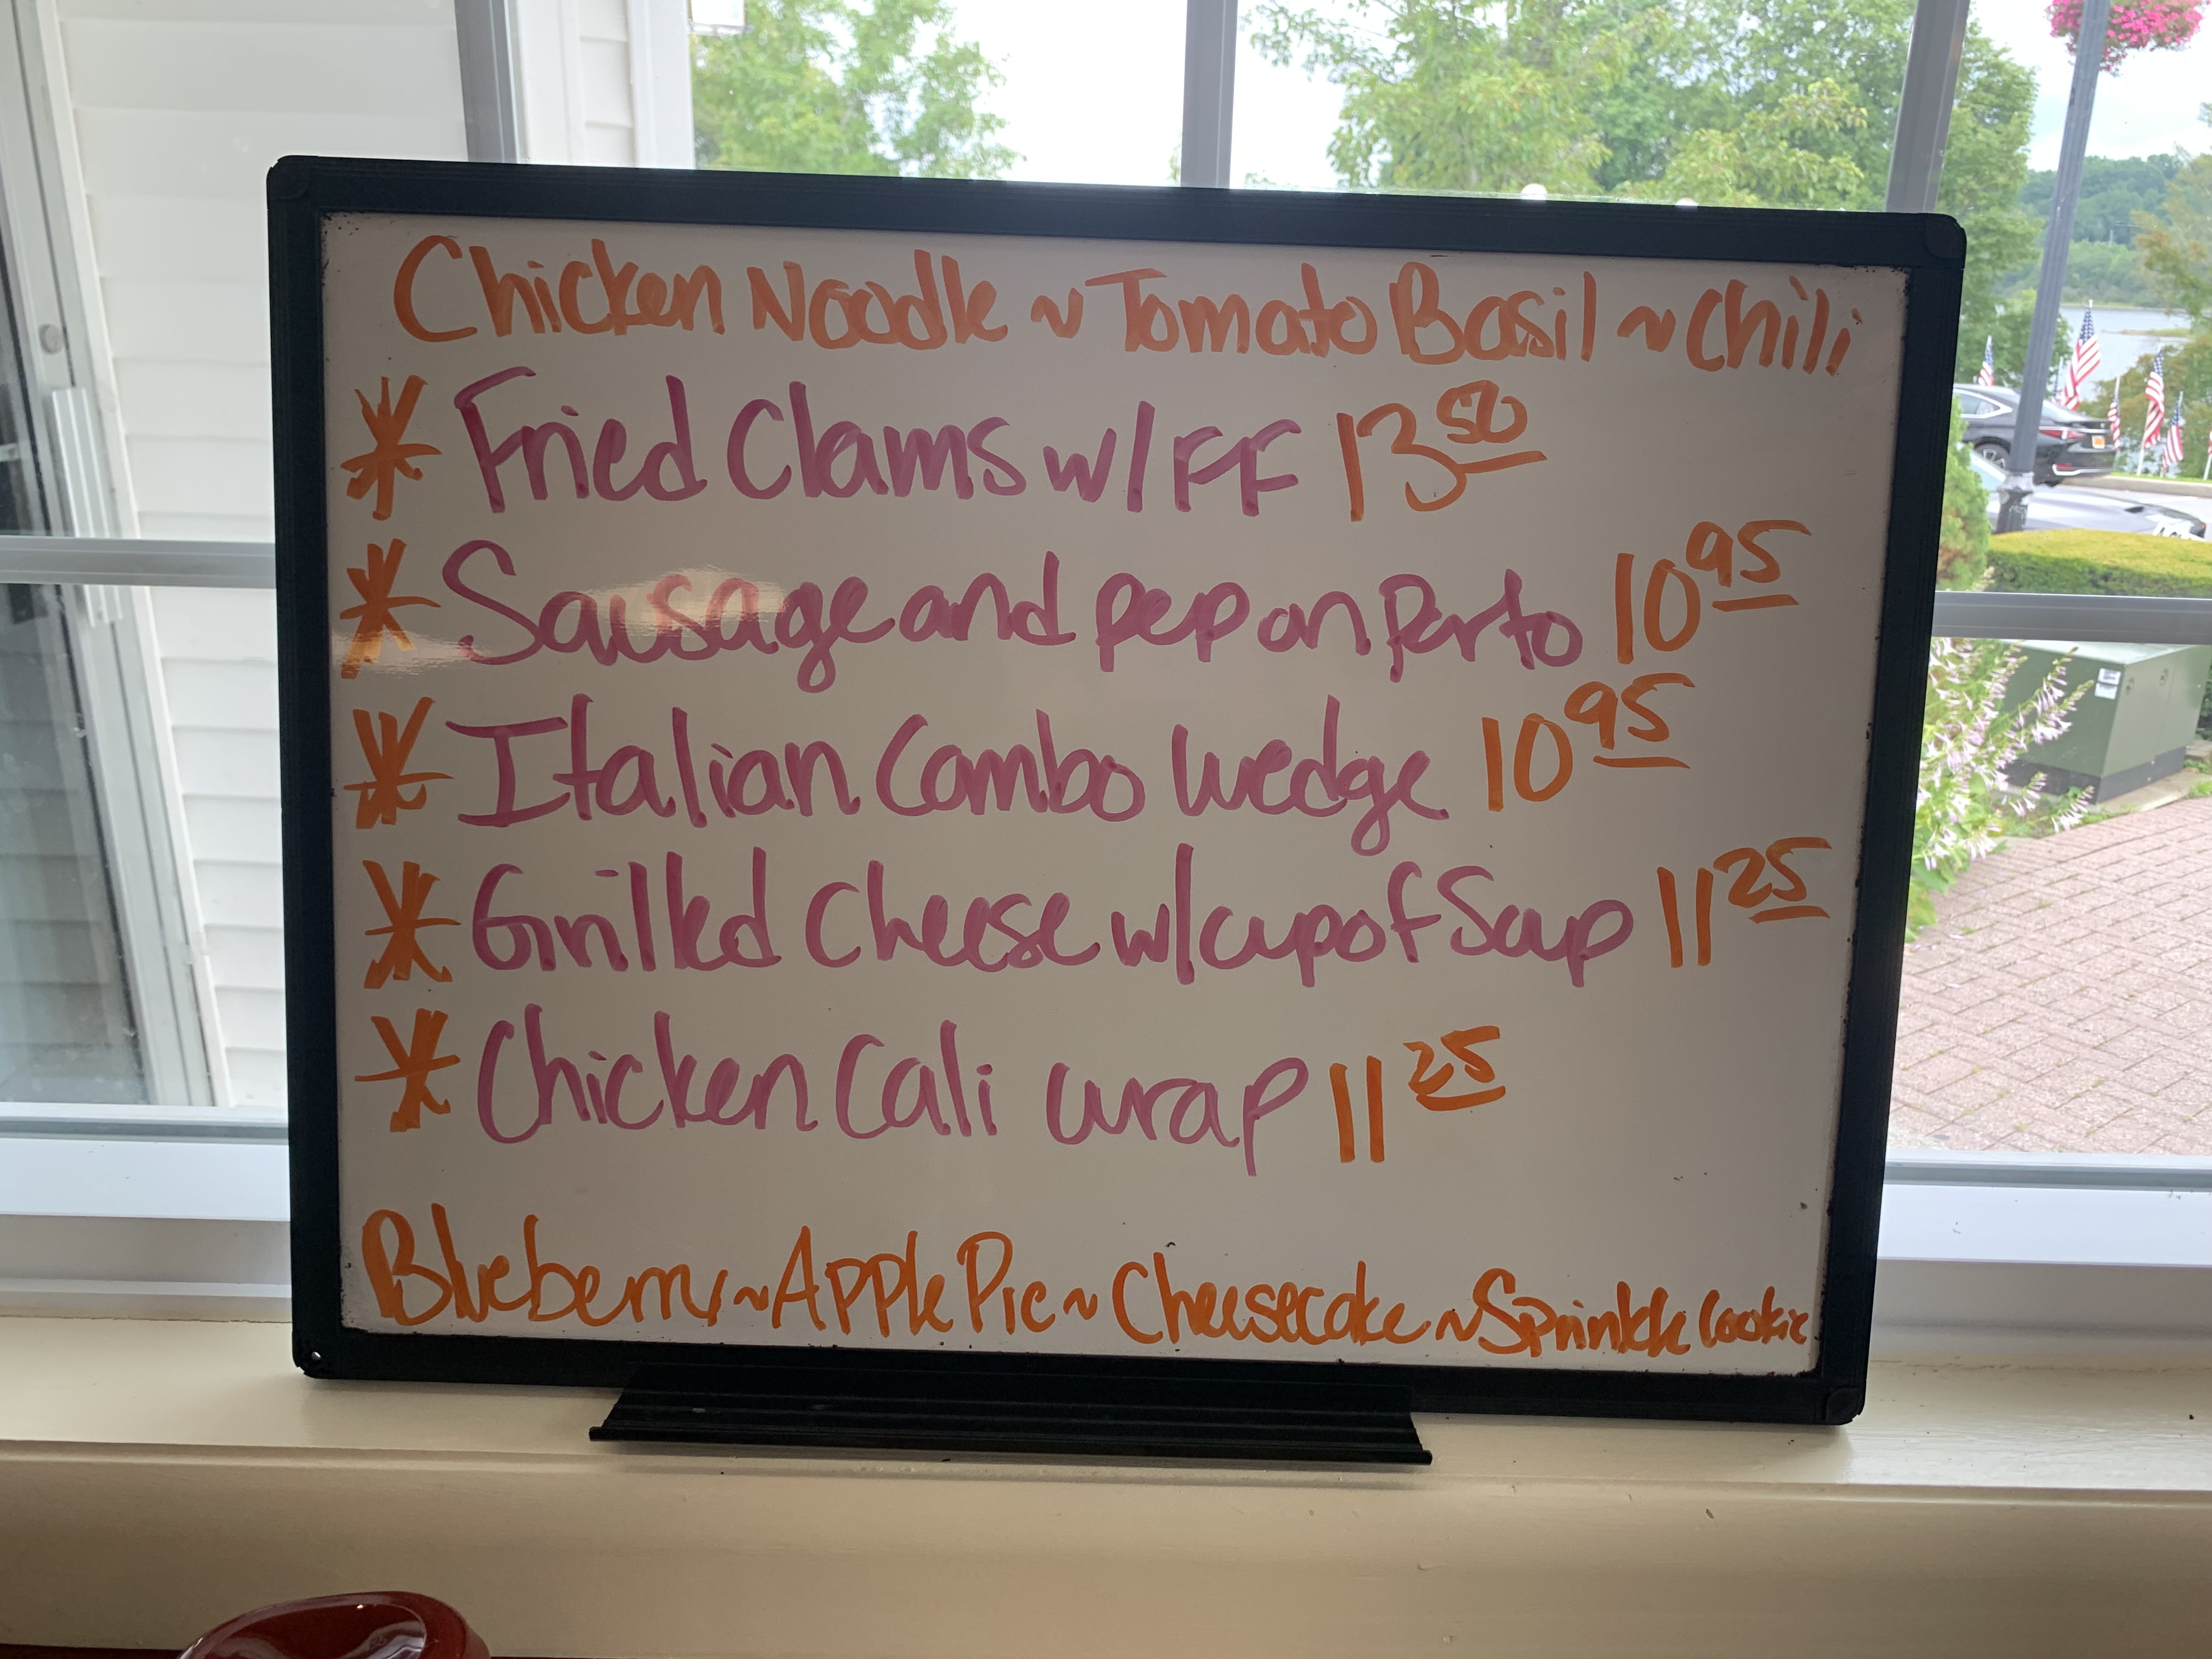 Chicken Noodle ~ Tomato Basil ~ Chili
* Fried Clams w/ FF 13 50
* Sausage and pep on Porto 10 95
* Italian Combo Wedge 10 95
* Grilled Cheese w/ cup of Soup 11 25
* Chicken Cali wrap 11 25
Blueberry ~ Apple Pie ~ Cheesecake ~ Sprinkle Cookie